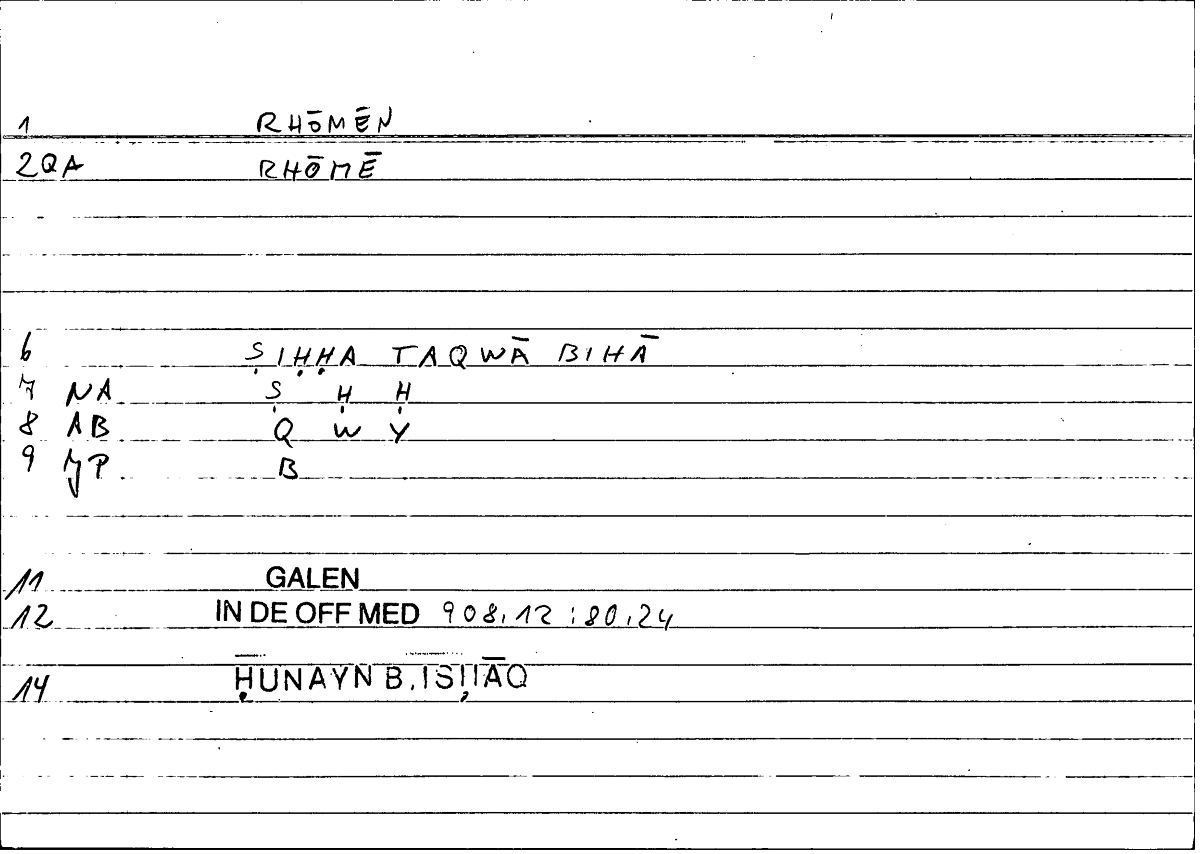 1 RHŌMĒN
2 QA RHŌMĒ
6 ṢIḤḤA TAQWĀ BIHĀ
7 NA Ṣ Ḥ Ḥ
8 AB Q W Y
9 B
11 GALEN
12 IN DE OFF MED 908,12 ; 80,24
14 ḤUNAYN B. ISḤĀQ